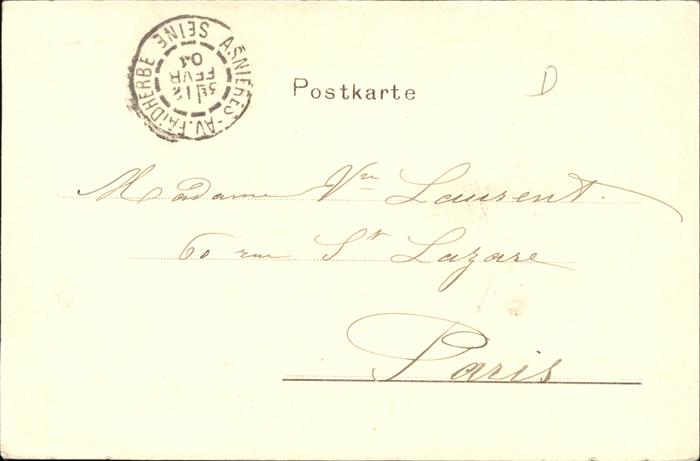 ASNIÈRES-AV. FAIDHERBE SEINE
12
FEVR
04
Postkarte
D
Madame Vve Laurent.
60 rue St Lazare
Paris